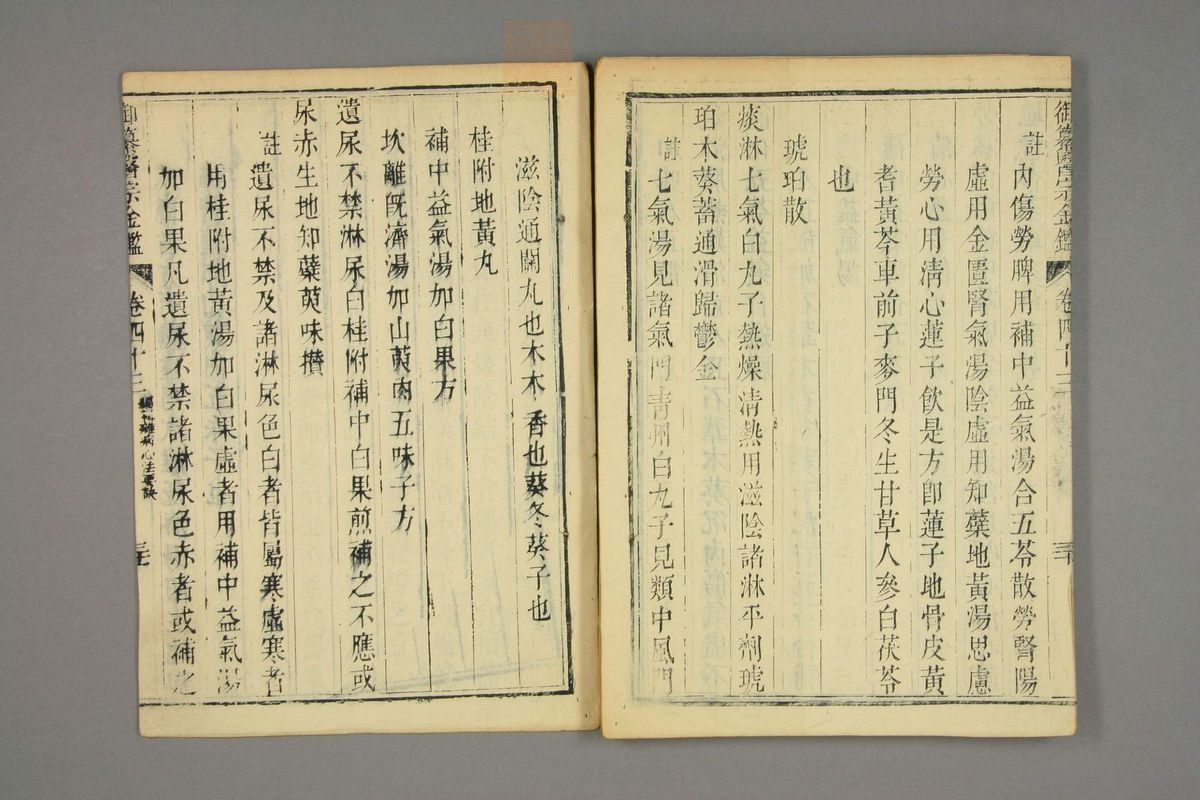 御纂醫宗金鑑 卷四十三
註內傷勞脾用補中益氣湯合五苓散勞腎陽
虛用金匱腎氣湯陰虛用知蘗地黃湯思慮
勞心用清心蓮子飲是方卽蓮子地骨皮黃
耆黃芩車前子麥門冬生甘草人參白茯苓
也
琥珀散
痰淋七氣白丸子熱燥清熱用滋陰諸淋平劑琥
珀木葵蓄通滑歸鬱金
註七氣湯見諸氣門青州白丸子見類中風門
滋陰通關丸也木木香也葵冬葵子也
桂附地黃丸
補中益氣湯加白果方
坎離旣濟湯加山萸肉五味子方
遺尿不禁淋尿白桂附補中白果煎補之不應或
尿赤生地知蘗萸味攢
註遺尿不禁及諸淋尿色白者皆屬寒虛寒者
用桂附地黃湯加白果虛者用補中益氣湯
加白果凡遺尿不禁諸淋尿色赤者或補之
御纂醫宗金鑑 卷四十三 編輯雜病心法要訣